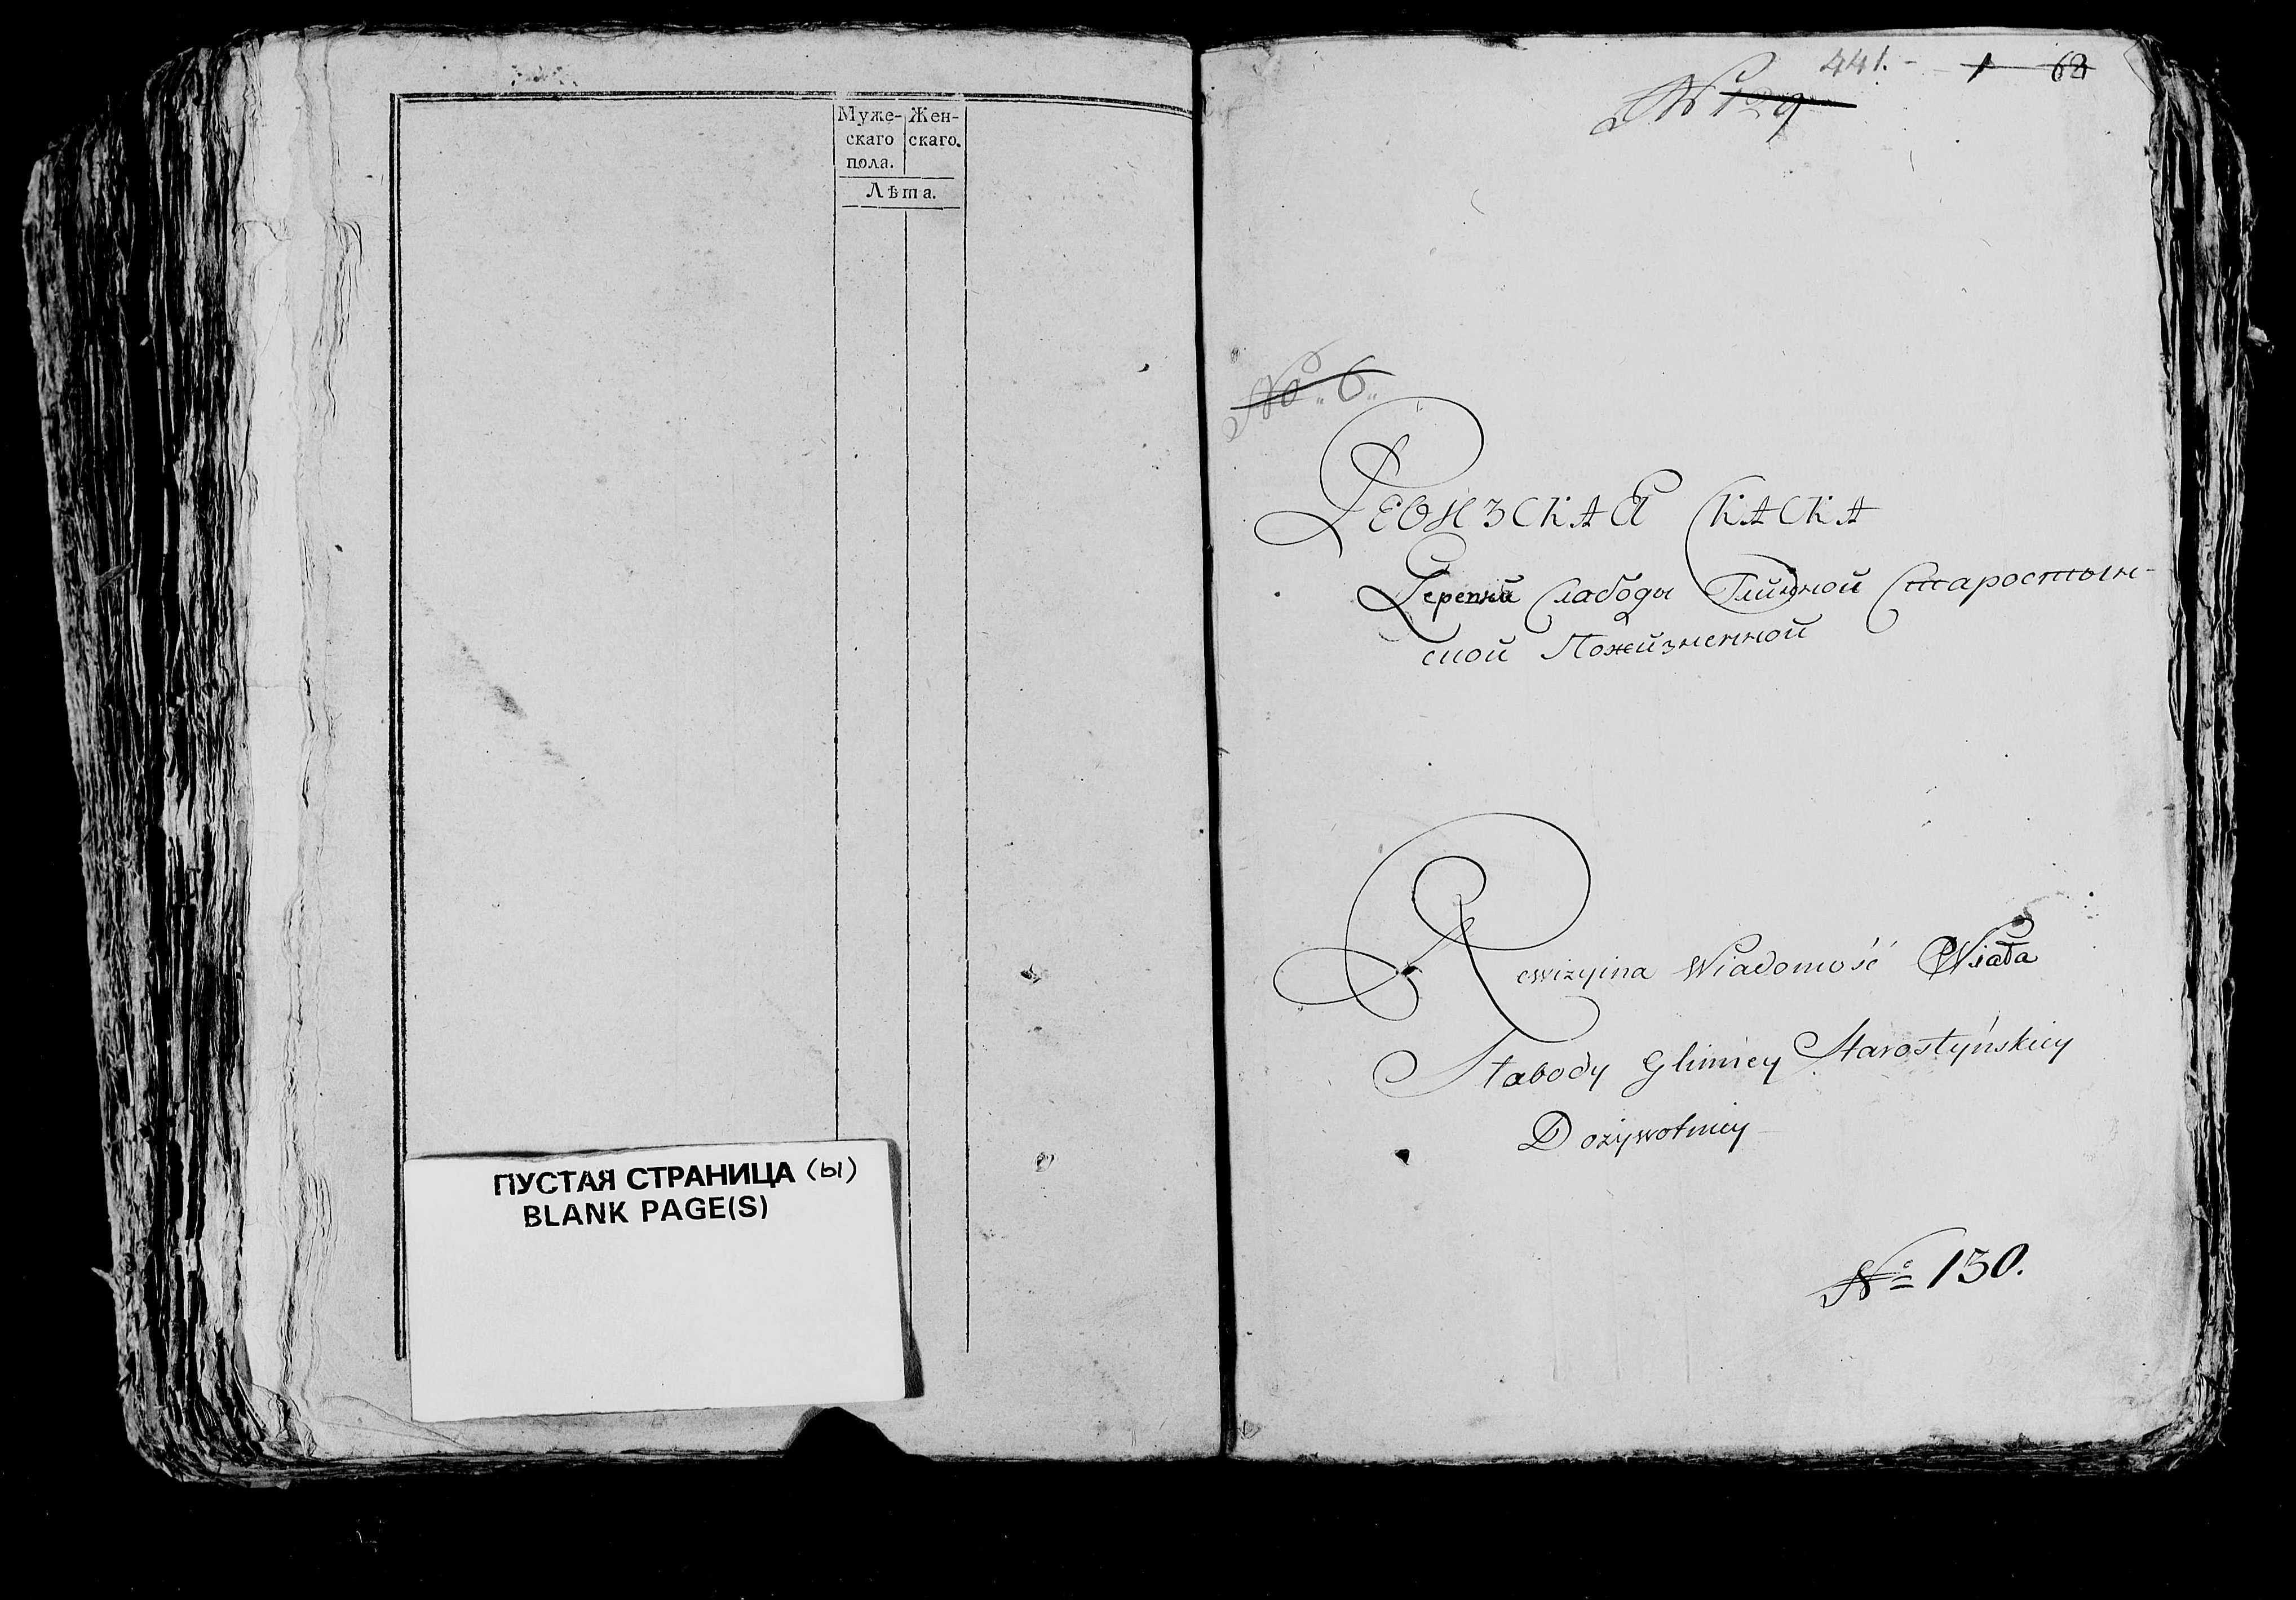 Муже- Жен-
скаго скаго.
пола.
Лѣта.
ПУСТАЯ СТРАНИЦА (ы)
BLANK PAGE(S)
441. 1 62
№ 129
№ 6
РЕВИЗСКАЯ СКАСКА
Деревни Слабоды Глинной Старостын-
ской Пожизненной
Rewizyina Wiadomość
Słabody Glinney Starostyńskiey
Dożywotniey
№ 130.